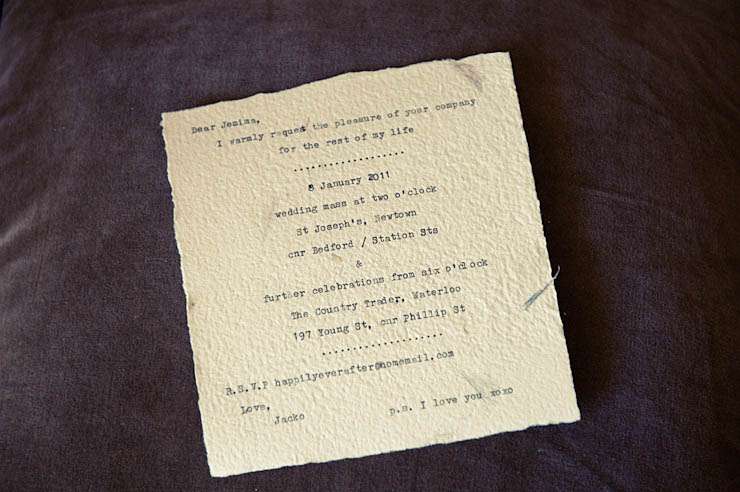 Dear Jemima,
I warmly request the pleasure of your company
for the rest of my life
...................
8 January 2011
wedding mass at two o'clock
St Joseph's, Newtown
cnr Bedford / Station Sts
&
further celebrations from six o'clock
The Country Trader, Waterloo
197 Young St, cnr Phillip St
....................
R.S.V.P happilyeverafter@homemail.com
Love,
Jacko
p.s. I love you xoxo